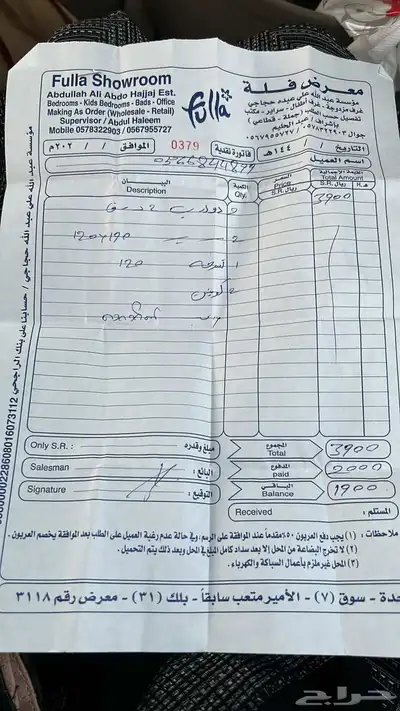 Fulla Showroom
معرض فلة
Abdullah Ali Abdo Hajjaj Est.
مؤسسة عبد الله علي عبده حجاجي
Bedrooms - Kids Bedrooms - Bads - Office
غرف مزدوجة - غرف أطفال - سراير - مكتب
Making As Order (Wholesale - Retail)
تفصيل حسب الطلب (جملة - قطاعي)
Supervisor / Abdul Haleem
بإشراف / عبد الحليم
Mobile 0578322903 / 0567955727
جوال ٠٥٧٨٣٢٢٩٠٣ / ٠٥٦٧٩٥٥٧٢٧
fulla
التاريخ / / ١٤٤هـ
فاتورة نقدية 0379
الموافق / / ٢٠٢م
اسم العميل
0566844899
البيان
Description
الكمية
السعر
Price
S.R. ريال
القيمة الإجمالية
Total Amount
S.R. ريال
H. هـ
2 دولاب 2 درف
3900
2 سرير 190×120
1 تسرحه 120
2 كومدن
Only S.R. :
مبلغ وقدره :
المجموع
Total
3900
Salesman
البائع :
المدفوع
paid
2000
Signature
التوقيع :
الباقي
Balance
1900
Received
المستلم :
ملاحظات : (١) يجب دفع العربون ٥٠٪ مقدماً عند الموافقة على الرسم، وفي حالة عدم رغبة العميل على الطلب بعد الموافقة يخصم العربون.
(٢) لا تخرج البضاعة من المحل إلا بعد سداد كامل المبلغ في المحل وبعد ذلك يتم التحميل.
(٣) المحل غير ملزم بأعمال السباكة والكهرباء.
حدة - سوق (٧) - الأمير متعب سابقاً - بلك (٣١) - معرض رقم ٣١١٨
مؤسسة عبد الله علي عبد الله حجاجي / حسابنا على بنك الراجحي 0000002286080160731​12
حراج